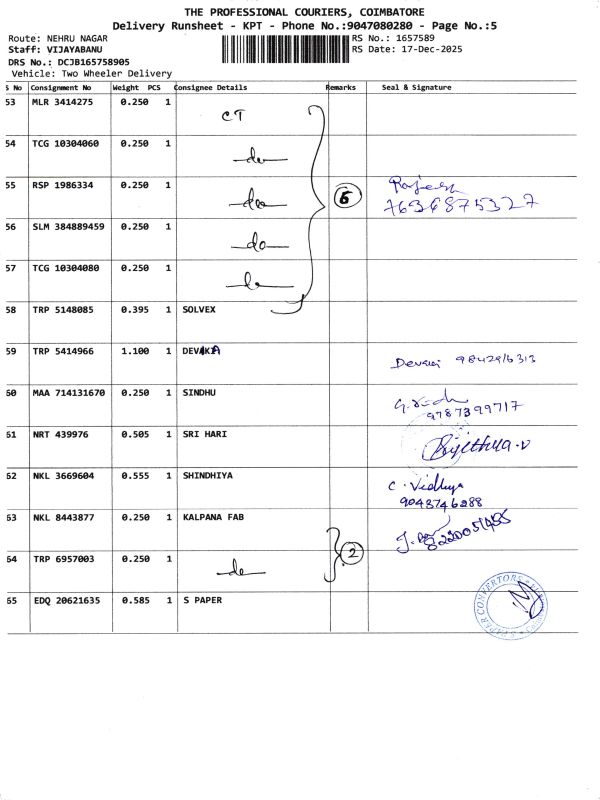 THE PROFESSIONAL COURIERS, COIMBATORE
Delivery Runsheet - KPT - Phone No.:9047080280 - Page No.:5
Route: NEHRU NAGAR
RS No.: 1657589
Staff: VIJAYABANU
RS Date: 17-Dec-2025
DRS No.: DCJB165758905
Vehicle: Two Wheeler Delivery
S No Consignment No Weight PCS Consignee Details Remarks Seal & Signature
53 MLR 3414275 0.250 1 CT
54 TCG 10304060 0.250 1 do
55 RSP 1986334 0.250 1 do 6 Rajesh
7636875327
56 SLM 384889459 0.250 1 do
57 TCG 10304080 0.250 1 do
58 TRP 5148085 0.395 1 SOLVEX
59 TRP 5414966 1.100 1 DEVAKIA Devaki 9842916313
60 MAA 714131670 0.250 1 SINDHU
9787399717
61 NRT 439976 0.505 1 SRI HARI
62 NKL 3669604 0.555 1 SHINDHIYA C. Vidhya
9043746288
63 NKL 8443877 0.250 1 KALPANA FAB
64 TRP 6957003 0.250 1 do 2
65 EDQ 20621635 0.585 1 S PAPER
S PAPER CONVERTORS